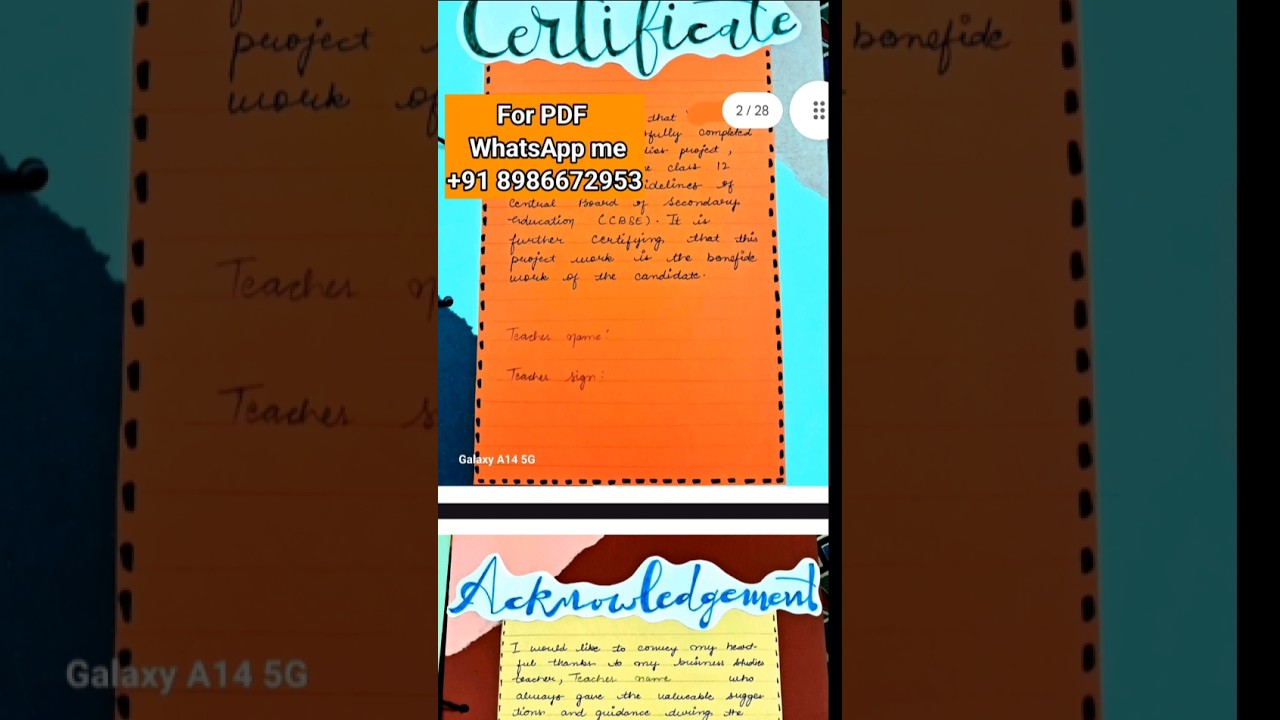 Certificate
For PDF
WhatsApp me
+91 8986672953
2 / 28
that
fully completed
project ,
class 12
idelines of
Central Board of Secondary
Education (CBSE). It is
further certifying that this
project work is the bonefide
work of the candidate.
Teacher name:
Teacher sign:
Galaxy A14 5G
Acknowledgement
I would like to convey my heart-
ful thanks to my business studies
teacher, Teacher name who
always gave the valueable sugges
tions and guidance during the
project
bonefide
work of
Teacher
Teacher
Galaxy A14 5G